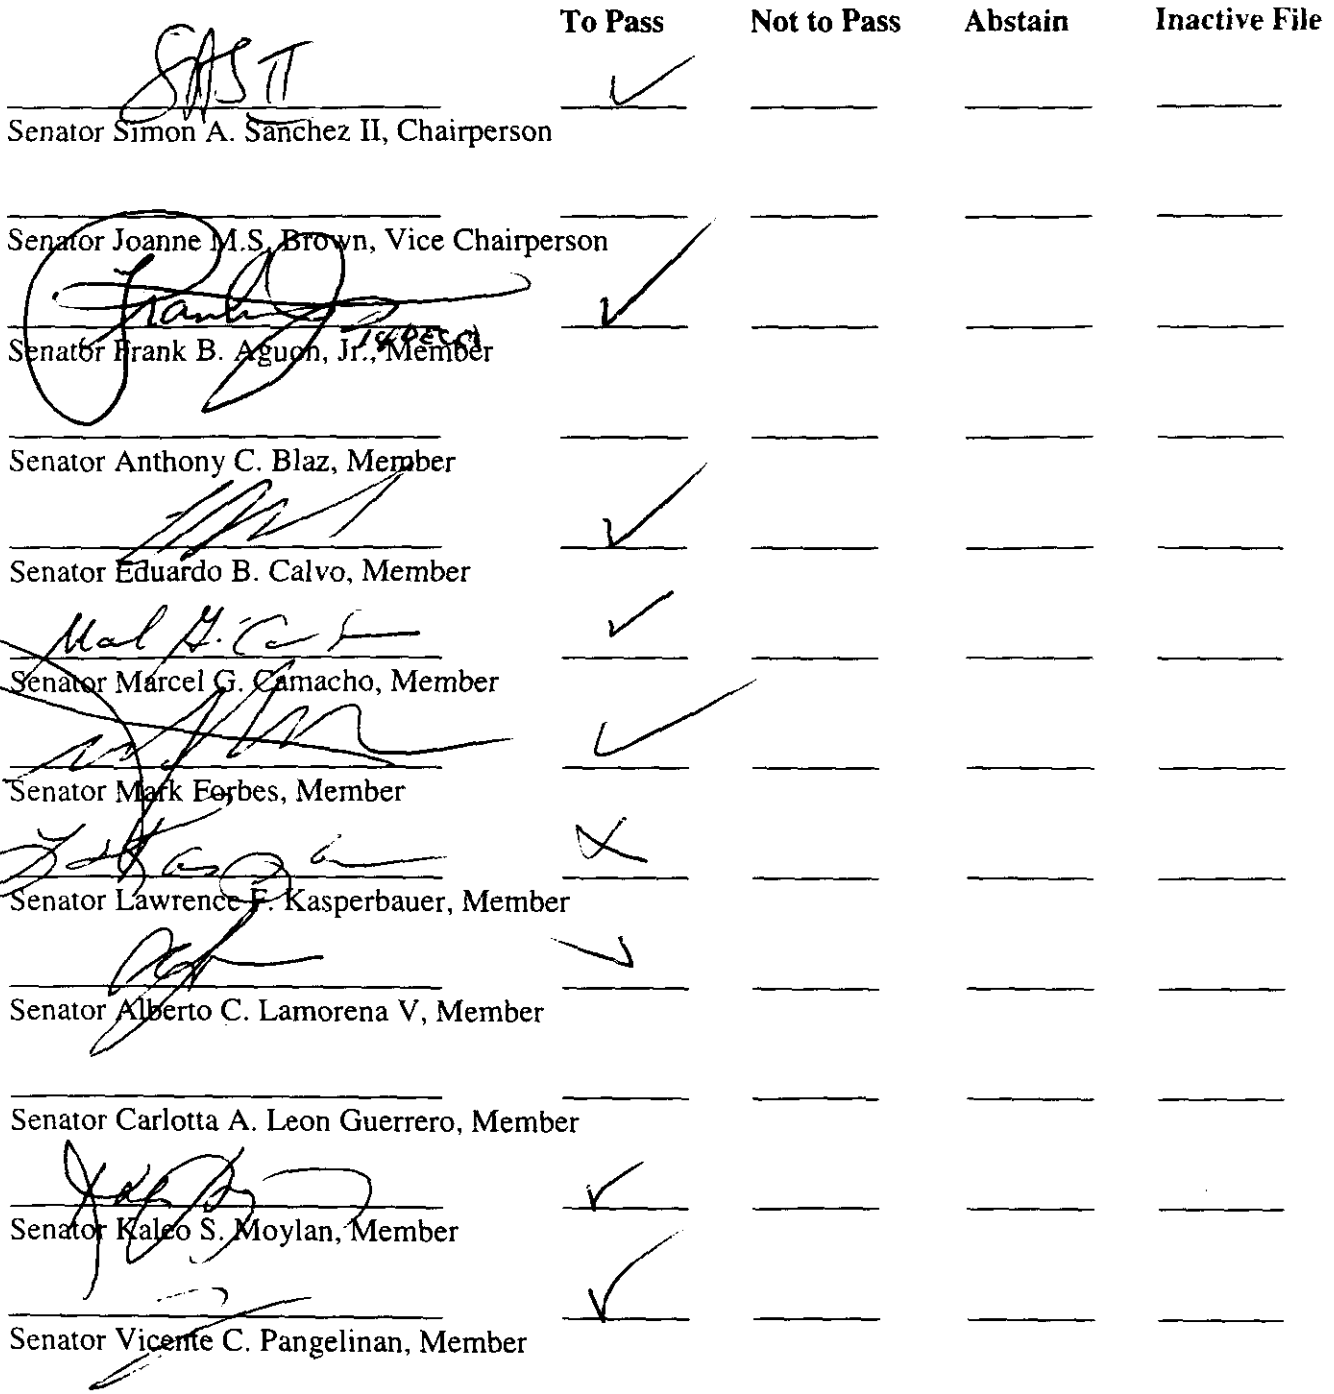 To Pass Not to Pass Abstain Inactive File
SAS II
Senator Simon A. Sanchez II, Chairperson
Senator Joanne M.S. Brown, Vice Chairperson
Frank
14 DEC
Senator Frank B. Aguon, Jr., Member
Senator Anthony C. Blaz, Member
Senator Eduardo B. Calvo, Member
Senator Marcel G. Camacho, Member
Senator Mark Forbes, Member
Senator Lawrence F. Kasperbauer, Member
Senator Alberto C. Lamorena V, Member
Senator Carlotta A. Leon Guerrero, Member
Senator Kaleo S. Moylan, Member
Senator Vicente C. Pangelinan, Member